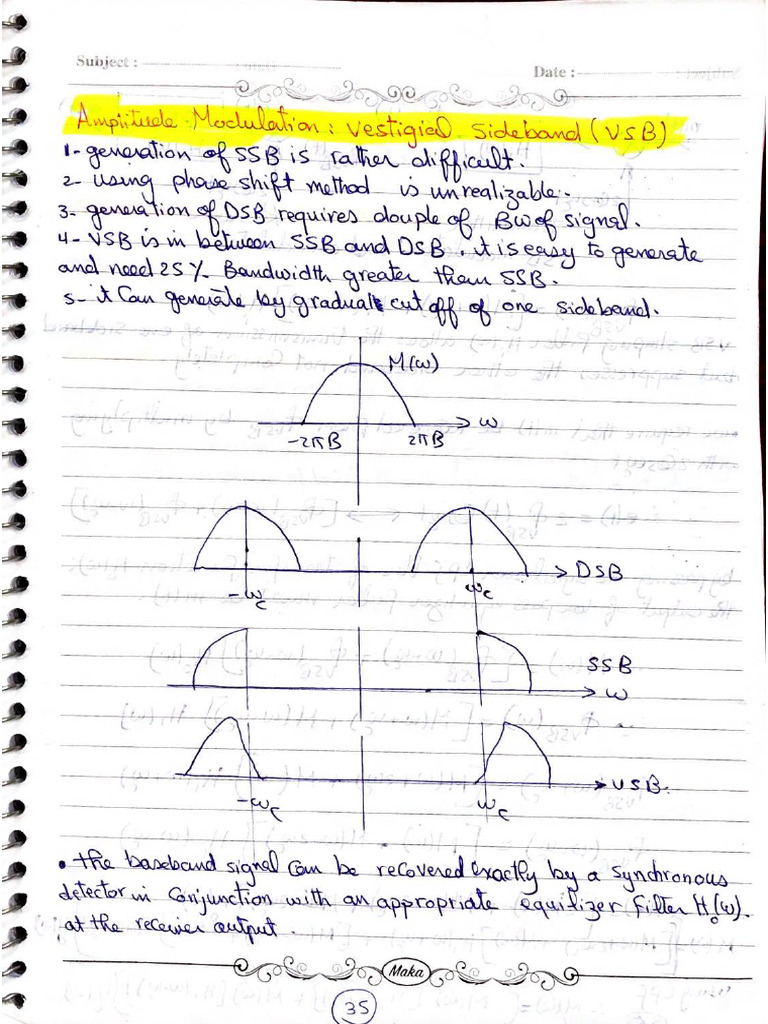 Subject :
Date :
Amplitude Modulation : Vestigial Sideband (VSB)
1- generation of SSB is rather difficult.
2- using phase shift method is unrealizable.
3- generation of DSB requires douple of BW of signal.
4- VSB is in between SSB and DSB, it is easy to generate
and need 25 % Bandwidth greater them SSB.
5- it can generate by gradual cut off of one sideband.
M(ω)
ω
-2πB 2πB
DSB
-ωc ωc
SSB
ω
VSB.
-ωc ωc
• the baseband signal can be recovered exactly by a synchronous
detector in conjunction with an appropriate equilizer filter Ho(ω).
at the receiver output.
Maka
35